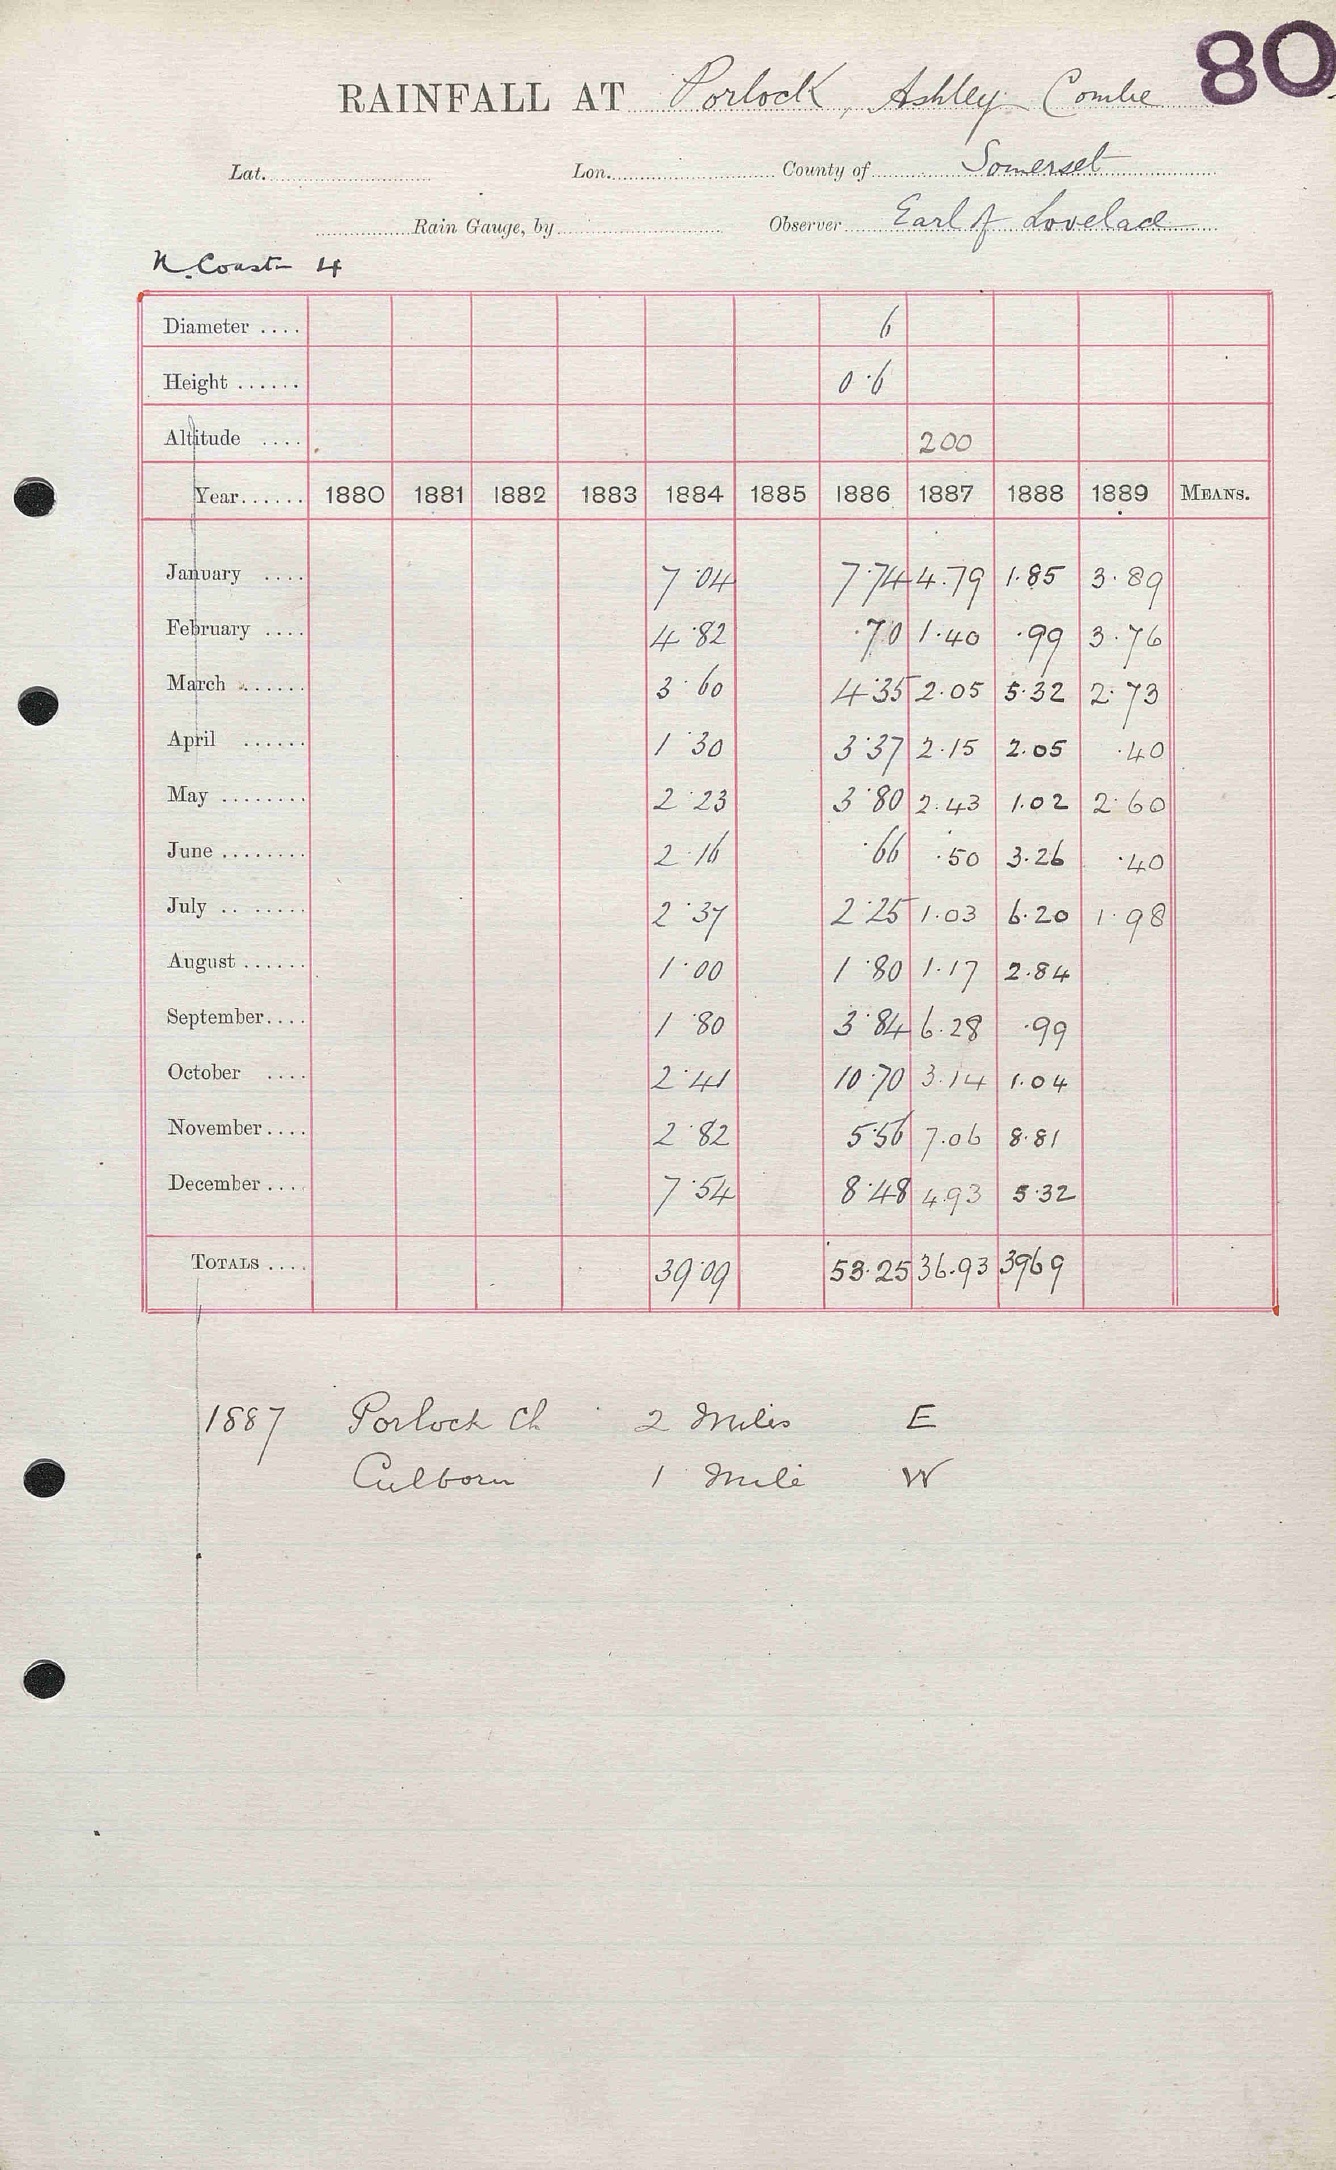 80
RAINFALL AT Porlock, Ashley Combe
Lat. Lon. County of Somerset
Rain Gauge, by Observer Earl of Lovelace
N. Coast 4
Diameter .... 6
Height ...... 0.6
Altitude .... 200
Year...... 1880 1881 1882 1883 1884 1885 1886 1887 1888 1889 MEANS.
January .... 7.04 7.74 4.79 1.85 3.89
February .... 4.82 .70 1.40 .99 3.76
March ...... 3.60 4.35 2.05 5.32 2.73
April ...... 1.30 3.37 2.15 2.05 .40
May ........ 2.23 3.80 2.43 1.02 2.60
June ........ 2.16 .66 .50 3.26 .40
July .. ...... 2.37 2.25 1.03 6.20 1.98
August ...... 1.00 1.80 1.17 2.84
September.... 1.80 3.84 6.28 .99
October .... 2.41 10.70 3.14 1.04
November.... 2.82 5.56 7.06 8.81
December .... 7.54 8.48 4.93 5.32
TOTALS .... 39.09 53.25 36.93 39.69
1887 Porlock Ch 2 Miles E
Culborn 1 Mile W